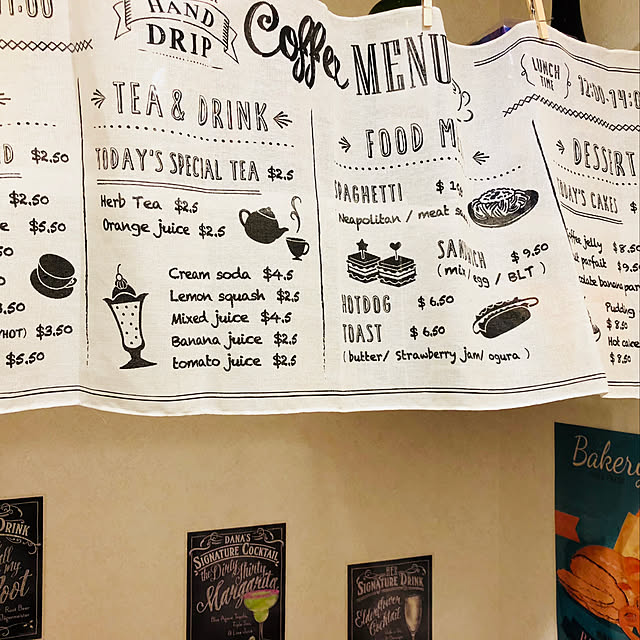 11:00
HAND
DRIP
Coffee MENU
$2.50
$2.50
$5.50
$3.50
$5.50
TEA & DRINK
TODAY'S SPECIAL TEA $2.5
Herb Tea $2.5
Orange juice $2.5
Cream soda $4.5
Lemon squash $2.5
Mixed juice $4.5
Banana juice $2.5
tomato juice $2.5
FOOD M
SPAGHETTI
Neapolitan / meat
SANDWICH $9.50
(mix/egg / BLT )
HOTDOG $6.50
TOAST $6.50
(butter/ Strawberry jam/ ogura )
LUNCH
TIME
12:00-14:0
DESSERT
TODAY'S CAKES $
jelly $8.50
parfait $9.5
banana par
Pudding
$8.50
Hot cake
$8.50
DRINK
my
Root Beer
Jägermeister
DANA'S
SIGNATURE COCKTAIL
the Dirty Thirty
Margarita
SIGNATURE DRINK
Elderflower
Cocktail
Bakery